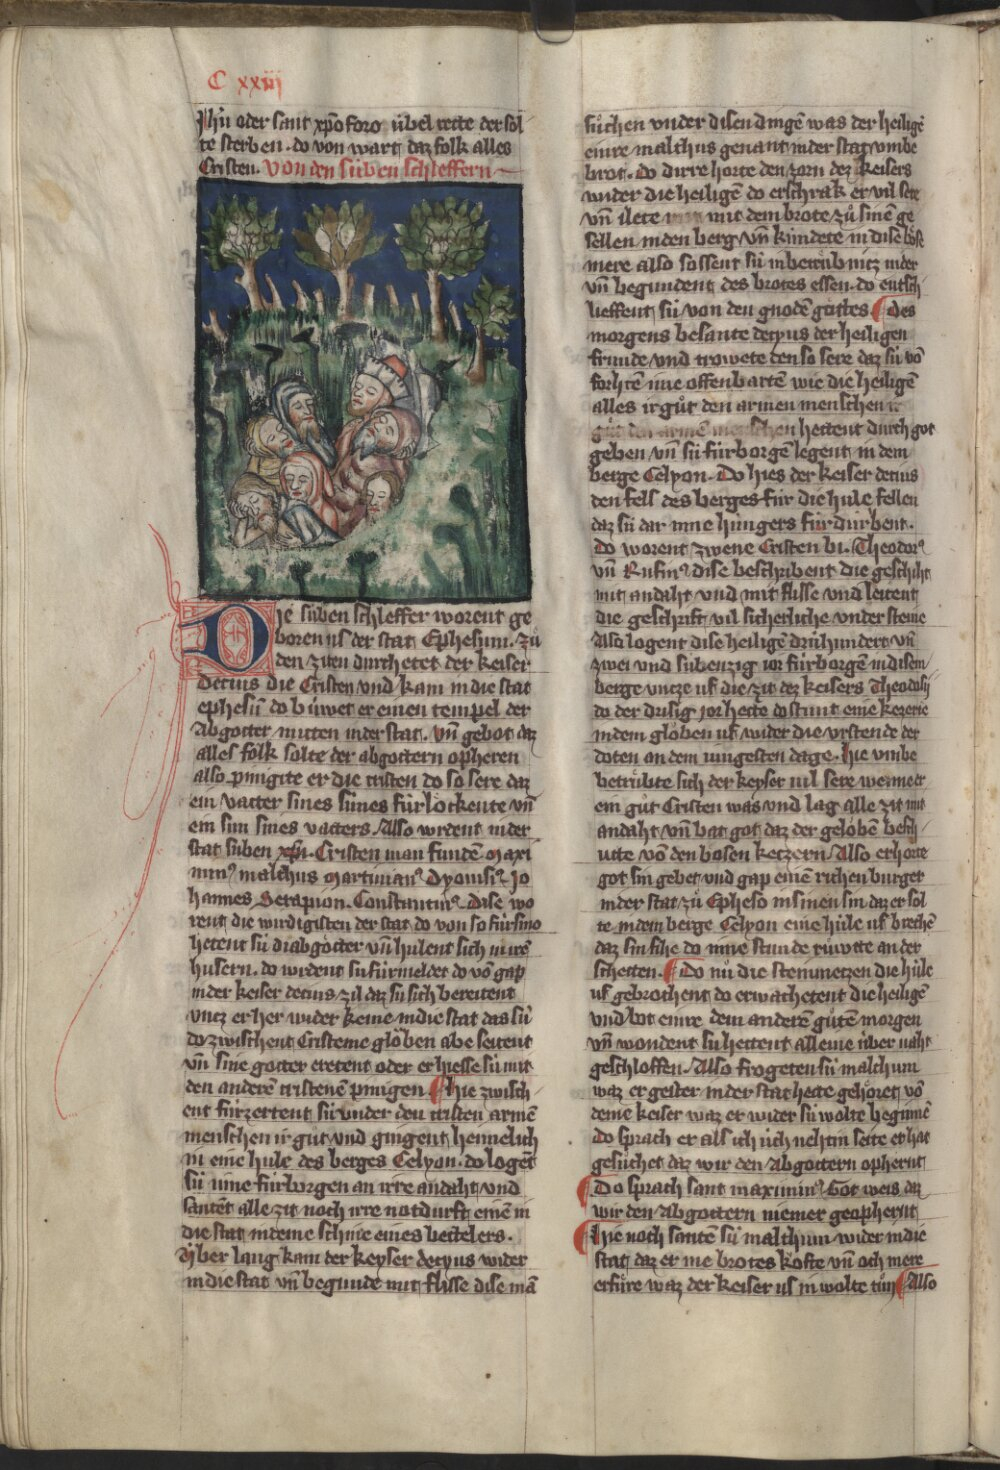 C xxiij
Jhū oder sant xp̄o foro übel rette der sol
te sterben · do von wart daz folk alles
Cristen · von den süben schleffern
Die süben schleffer worent ge
boren us der stat Ephesum · zů
den ziten durchetet der keiser
Decius die Cristen vnd kam in die stat
ephesū do buwet er einen tempel der
Abgötter mitten in der stat · vn̄ gebot daz
alles folk solte der abgöttern opheren
also pinigite er die cristen do so sere daz
ein vatter sines sunes fürlöckente vn̄
ein sun sines vatters · Also wrdent in der
stat süben Cristen man fundē · Maxi
min᷒ malchus Martinian᷒ Dyonisi᷒ Jo
hannes Serapion · Constantin᷒ · Dise wo
rent die wirdigisten der stat do von so fürsmo
hetent sü di abgötter vn̄ hulent sich in irē
husern · do wrdent sü fürmeldet do vō gap
in der keiser decius zil daz sü sich bereitent
vntz er her wider keme in die stat das sü
do zwischent Cristeme glöben abe seitent
vn̄ sine götter eretent oder er hiesse sü mit
den anderē cristenē pinigen hie zwisch
ent fürzertent sü vnder den cristen armē
menschen ir gůt vnd gingent heimelich
in eine hule des berges Celyon · do logēt
sü inne fürborgen an irre andaht vnd
santēt alle zit noch irre notdurft einē in
die stat in deme schine eines bettelers ·
Vber lang kam der keyser decyus wider
in die stat vn̄ begunde mit flisse dise mā
sůchen vnder disen dingē was der heilige
einre malchus genant in der stat vmbe
brot · do dirre horte den zorn dez keisers
wider die heiligē do erschrak er vil sere
vn̄ ilete mit dem brote zů sinē ge
sellen in den berg vn̄ kündete in dise böse
mere also sossent sü in betrübnitz nider
vn̄ begundent des brotes essen · do entsch
lieffent sü von den gnodē gottes Des
morgens besante decyus der heiligen
fründe vnd trowete den so sere daz sü vō
forhtē ime offenbartē wie die heiligē
alles ir gůt den armen menschen
hettent durch got
geben vn̄ sü fürborgē legent in dem
berge Celyon · Do hies der keiser decius
den fels des berges für die hule fellen
daz sü dar inne hungers fürdurbent ·
Do worent zwene Cristen bi · Theodor᷒
vn̄ Rufin᷒ dise beschribent die geschiht
mit andaht vnd mit flisse vnd leitent
die geschrift vil sicherliche vnder steine
Also logent dise heiligē drühundert vn̄
zwei vnd sübenzig ior fürborgē in disem
berge vntze uf die zit dez keisers Theodosij
do der drisig jor hette do stunt eine ketzerie
in dem glöben uf wider die vrstende der
doten an dem iungesten dage · hie vmbe
betrübte sich der keyser vil sere wenne er
ein gůt Cristen was vnd lag alle zit mit
andaht vn̄ bat got daz der gelöben besch
utte vō den bösen ketzern Also erhorte
got sin gebet vnd gap einē richen burger
in der stat zů Epheso in sinen sin daz er sol
te in dem berge Celyon eine hüle uf brechē
daz sin fihe do inne stunde růwete an der
schetten · Do nů die steinmetzen die hüle
uf gebrochent do erwachetent die heiligē
vnd bot einre dem anderē gůtē morgen
vn̄ wondent sü hettent alleine über naht
geschloffen · Also frogeten sü malchum
waz er gester in der stat hette gehöret vō
deme keiser waz er wider sü wolte beginnē
do sprach er als ich üch nehtin seite er hat
gesůchet daz wir den Abgöttern ophernt
Do sprach sant maximin᷒ Got weis daz
wir den Abgöttern niemer geophernt
hie noch santē sü malchum wider in die
stat daz er me brotes köfte vn̄ och mere
erfüre waz der keiser us in wolte tůn Also